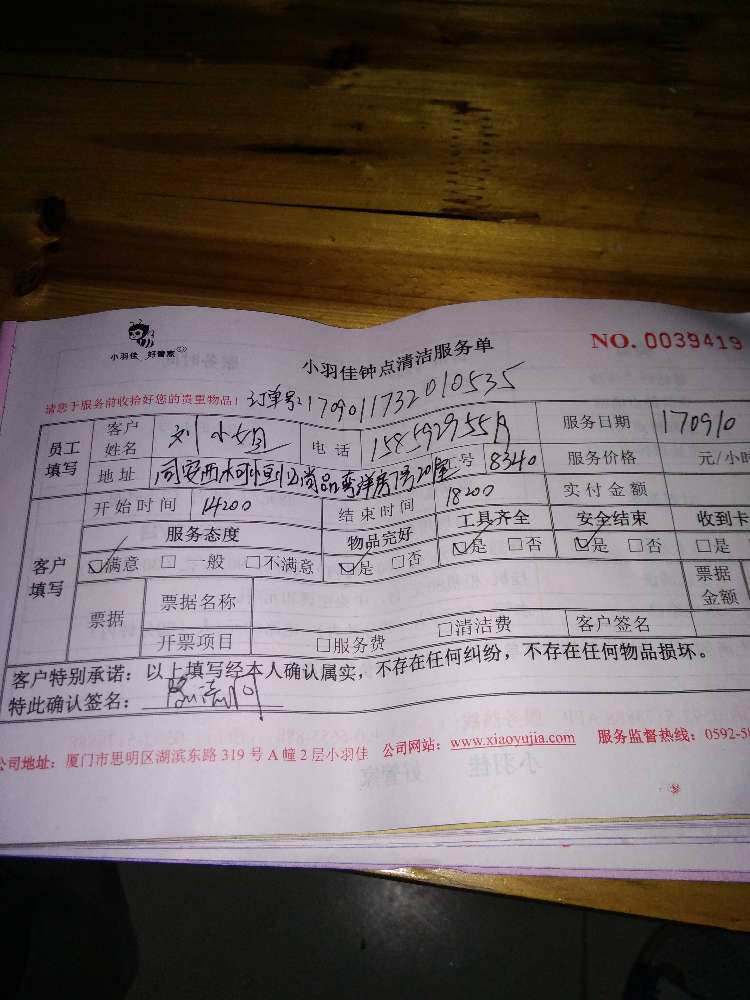 小羽佳 好管家
小羽佳钟点清洁服务单
NO. 0039419
请您于服务前收拾好您的贵重物品！ 订单号: 1709011732010535
员工填写 客户姓名 刘小姐 电话 服务日期 170910
地址 工号 8340 服务价格 元/小时
开始时间 14200 结束时间 18200 实付金额
客户填写 服务态度 物品完好 工具齐全 安全结束 收到卡
☑满意 □ 一般 □不满意 ☑是 □否 ☑是 □否 ☑是 □否 □是
票据 票据名称 票据金额
开票项目 □服务费 □清洁费 客户签名
客户特别承诺：以上填写经本人确认属实，不存在任何纠纷，不存在任何物品损坏。
特此确认签名：
公司地址：厦门市思明区湖滨东路 319 号 A 幢 2 层小羽佳 公司网站：www.xiaoyujia.com 服务监督热线：0592-58